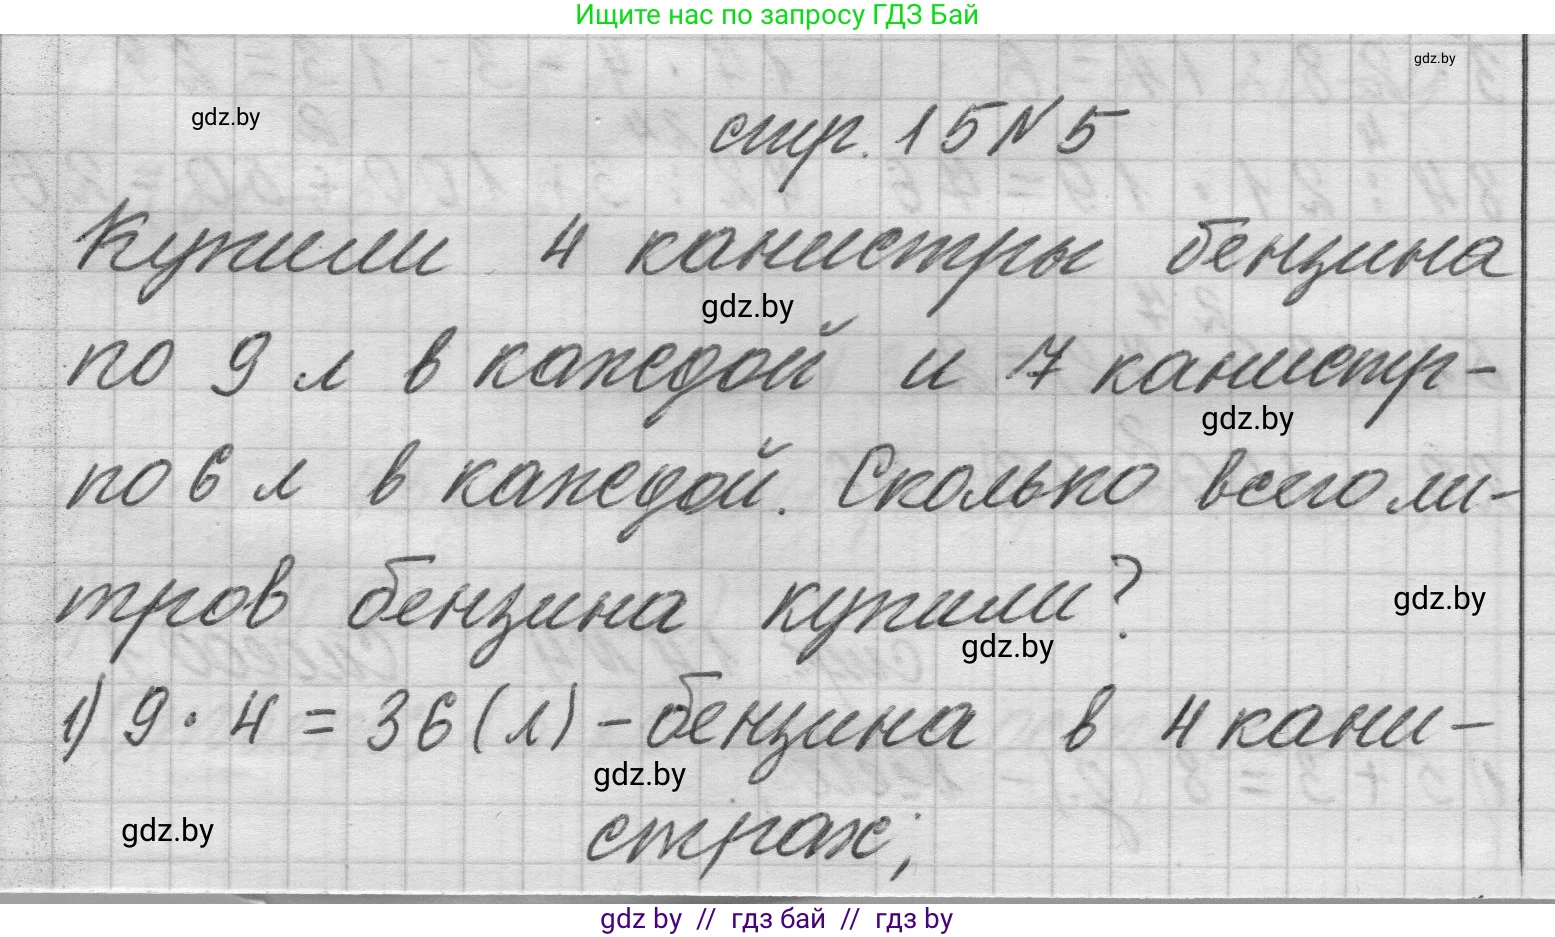 Ищите нас по запросу ГДЗ Бай
gdz.by
gdz.by
стр. 15 № 5
Купили 4 канистры бензина
gdz.by
по 9 л в каждой и 7 канистр-
gdz.by
по 6 л в каждой. Сколько всего ли-
тров бензина купили?
gdz.by
gdz.by
1) 9 · 4 = 36 (л) - бензина в 4 кани-
gdz.by
gdz.by
страх;
gdz by // гдз бай // gdz by